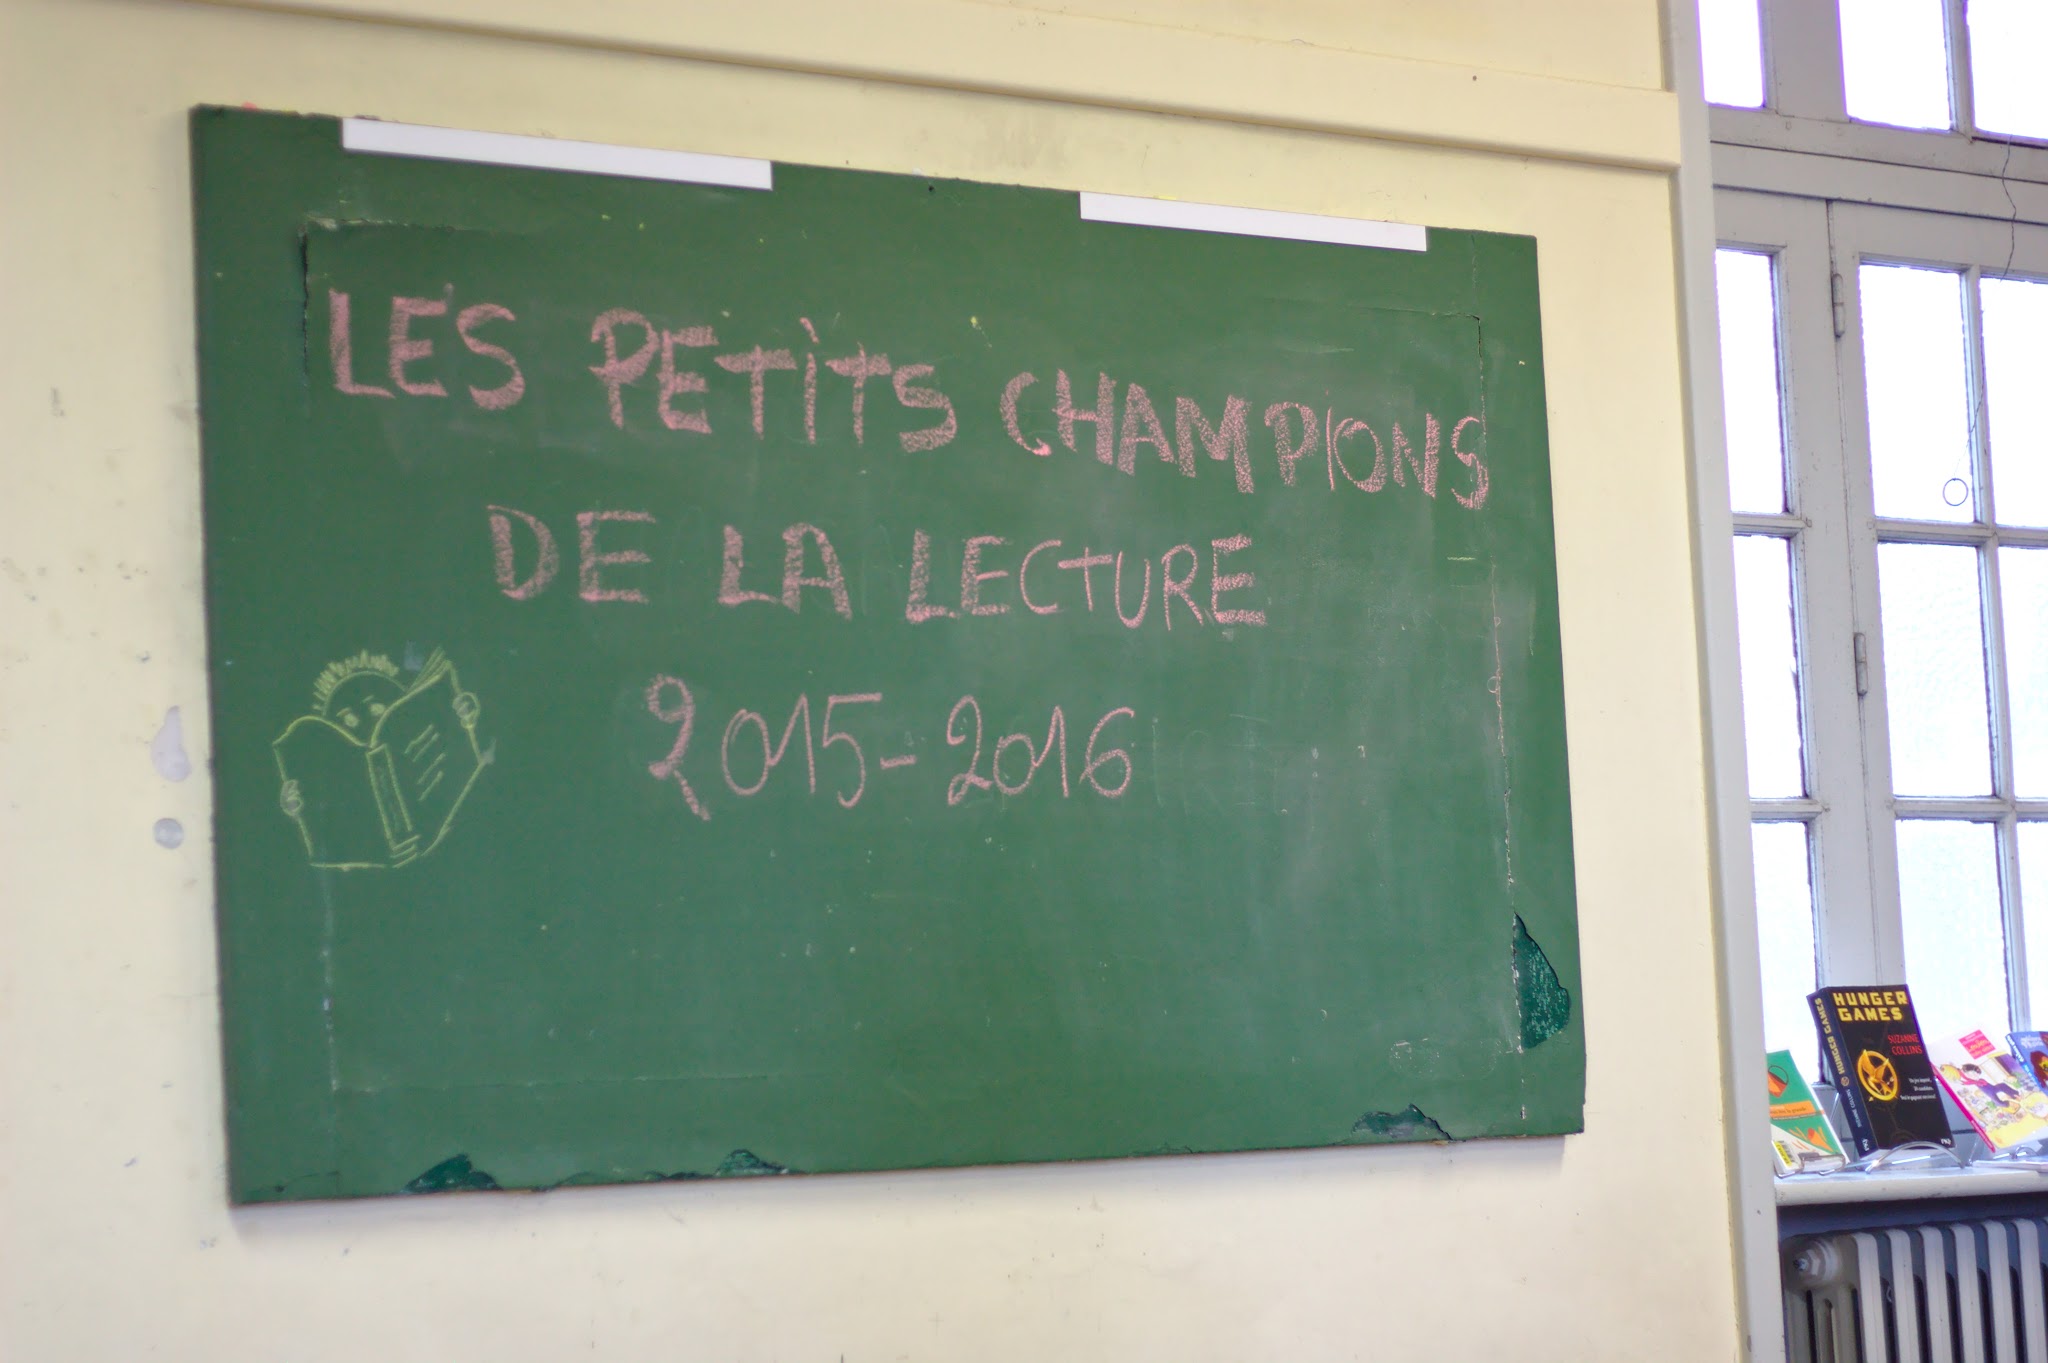 LES PETITS CHAMPIONS
DE LA LECTURE
2015-2016
HUNGER
GAMES
SUZANNE
COLLINS
HUNGER GAMES